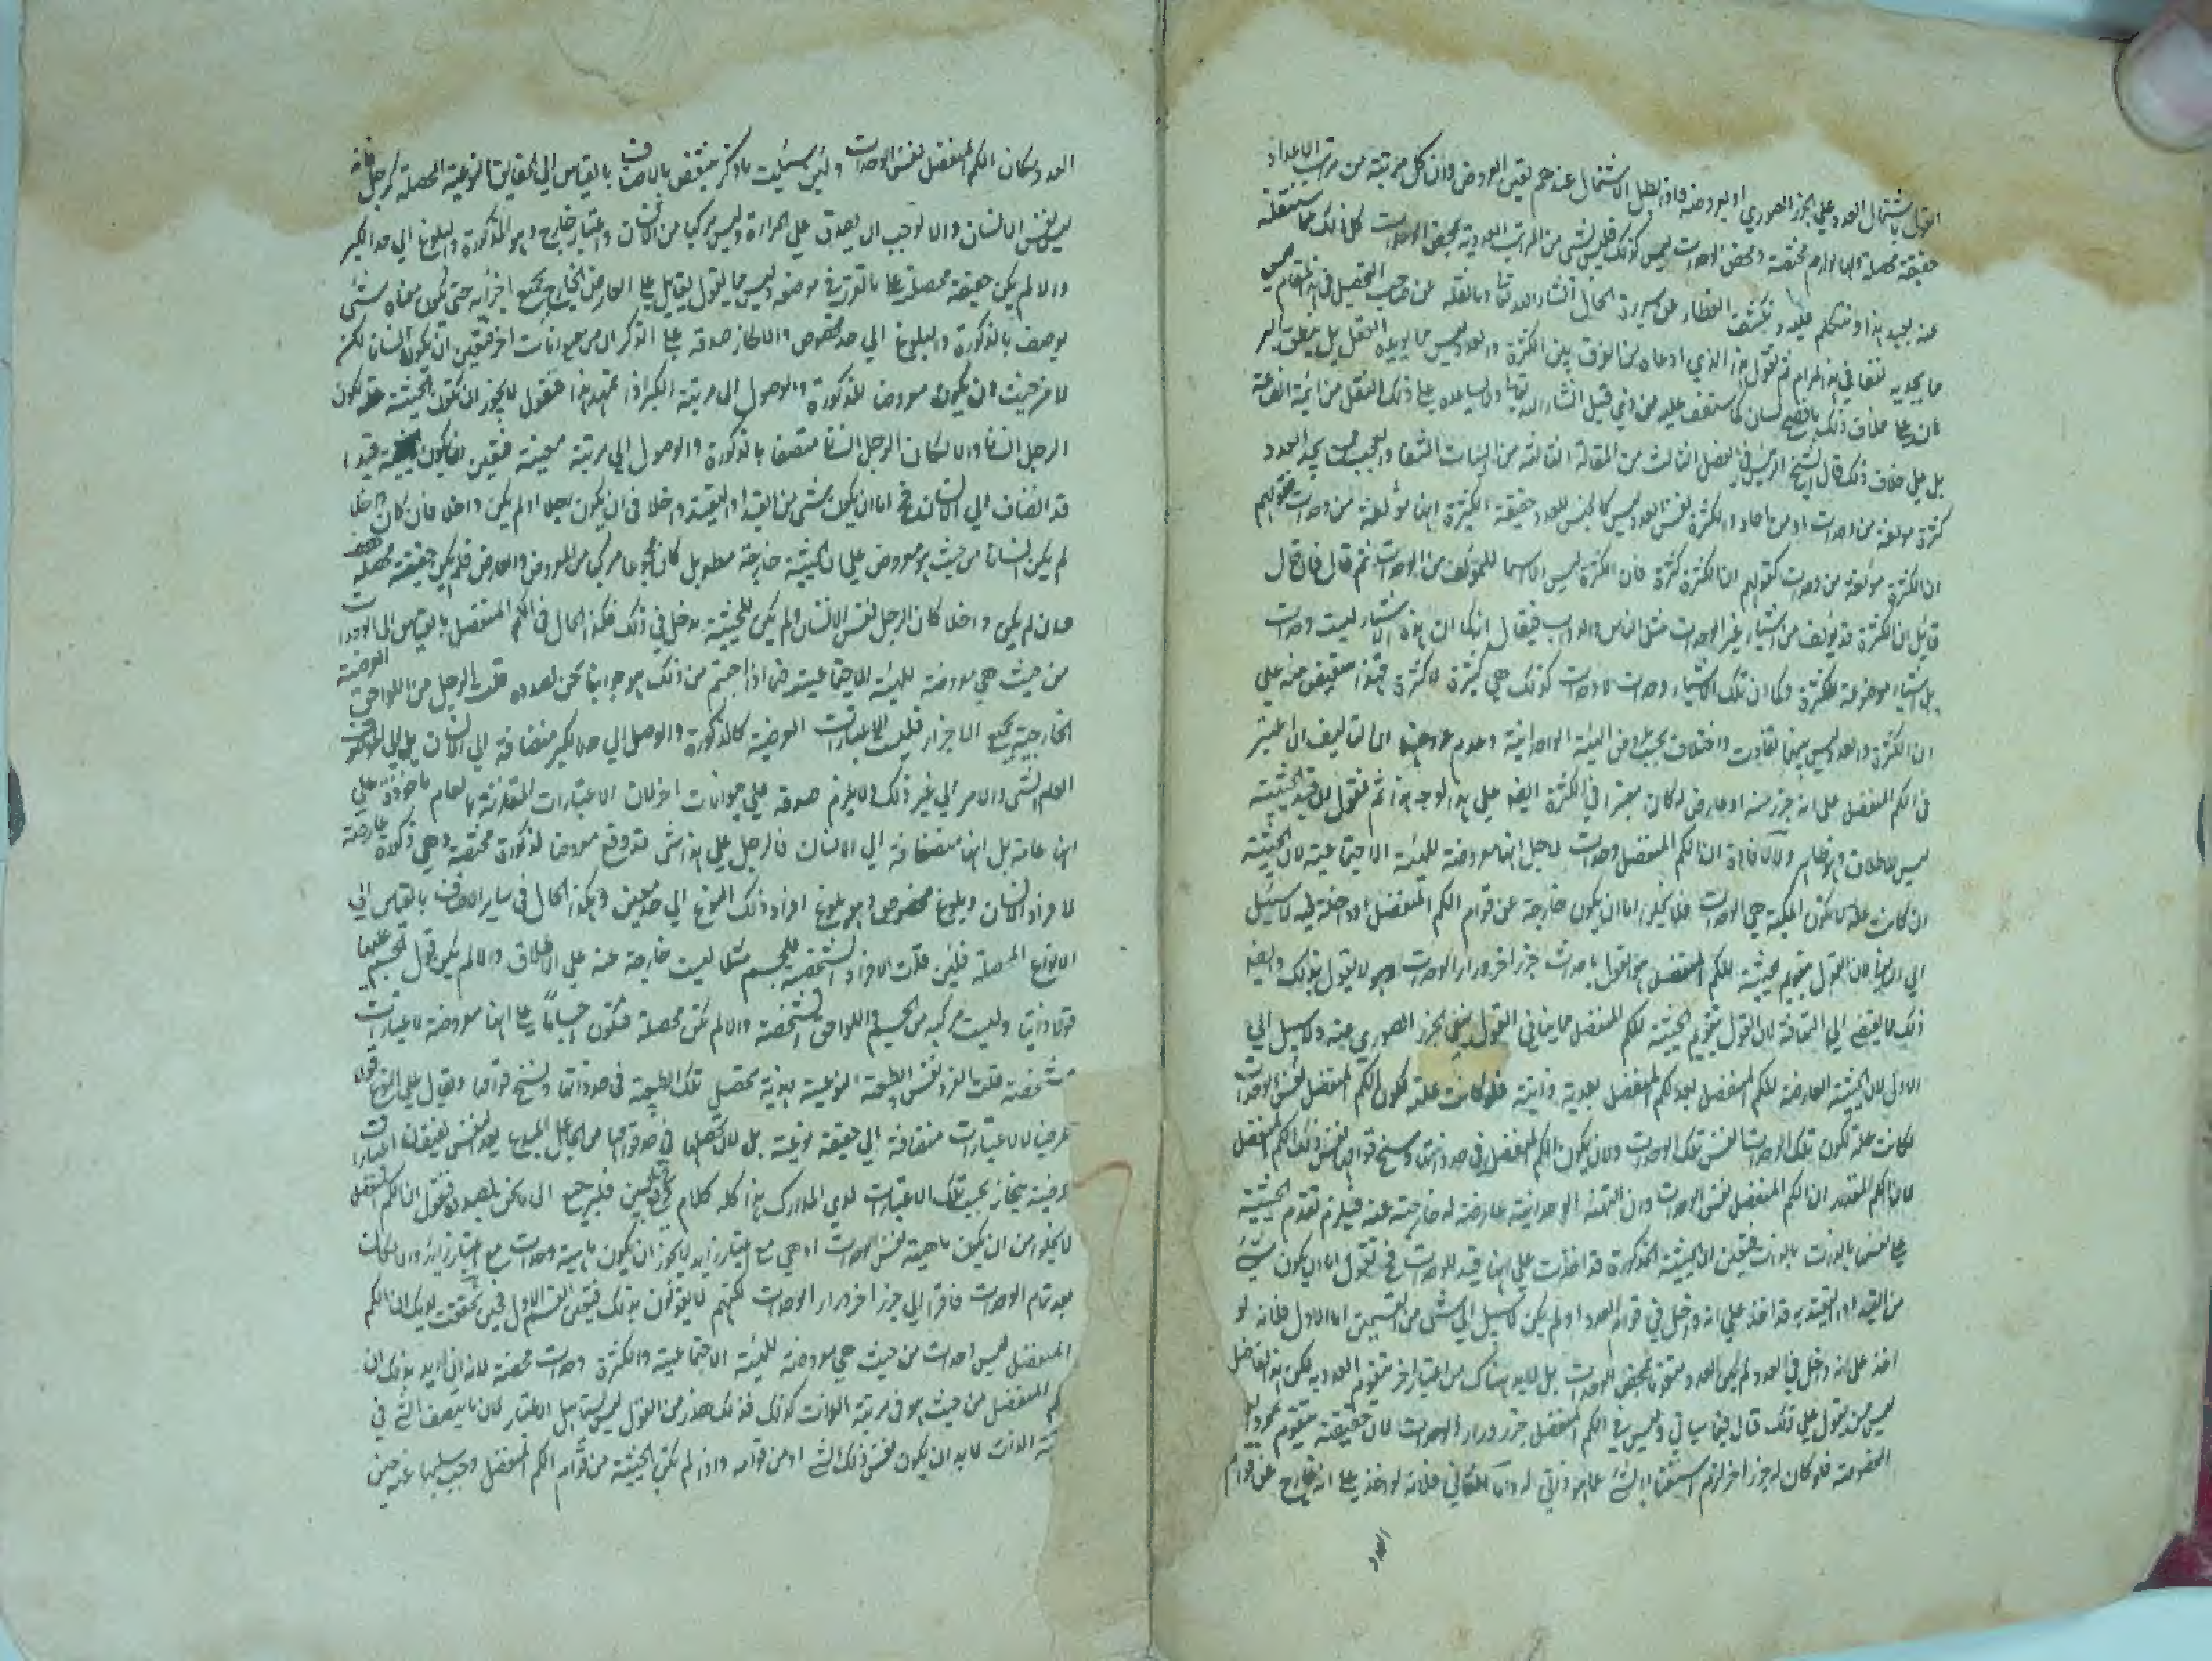 القول باشتمال العدد على الجزء الصوري او لعروضه فاذ بطل الاشتمال عندهم تعين العروض وان كل مرتبة من مراتب الاعداد
حقيقة محصلة ولها لوازم مختصة ومحض الوحدات ليس كذلك فليس شئ من المراتب العددية محض الوحدات كل ذلك مما ستنقله
عنه بعيد هذا ونتكلم عليه ونكشف الغطاء عن سريرة الحال انشاء الله تعالى وما نقله عن صاحب التحصيل في هذا المقام ليس
ما يجديه نفعا في هذا المرام ثم نقول هذا الذي ادعاه من الفرق بين الكثرة والعدد ليس مما يؤيده العقل بل ينطق البرهان
على خلاف ذلك بافصح لسان كما ستقف عليه من ذي قبل انشاء الله تعالى ولا يساعده على ذلك النقل من ائمة الصناعة
بل على خلاف ذلك قال الشيخ الرئيس في الفصل الثالث من المقالة الثالثة من الهيات الشفا والعجب ممن يحد العدد
كثرة مؤلفة من وحدات او من احاد والكثرة نفس العدد ليس كالجنس للعدد وحقيقة الكثرة انها مؤلفة من وحدات فقولهم
ان الكثرة مؤلفة من وحدات كقولهم ان الكثرة كثرة فان الكثرة ليس الا اسما للمؤلف من الوحدات ثم قال فان قال
قايل ان الكثرة قد يؤلف من اشياء غير الوحدات مثل الناس والدواب فيقال انه كما ان هذه الاشياء ليست وحدات
بل اشياء موضوعة للكثرة وكما ان تلك الاشياء وحدات لا وحدات كذلك هي كثيرة لا كثرة فهذا تنصيص منه على
ان الكثرة والعدد ليس بينهما تفاوت واختلاف بحسب عروض الهيئة الوحدانية وعدم عروضها اذ التاليف ان اعتبر
في الكم المنفصل على انه جزء منه او عارض له كان معتبرا في الكثرة ايضا على هذا الوجه هذا ثم نقول قيد الحيثية
ليس للاطلاق وهو ظاهر ولا لافادة ان الكم المنفصل وحدات لاجل انها معروضة للهيئة الاجتماعية لان الحيثية
ان كانت علة لكون الماهية هي الوحدات فلا يخلو اما ان يكون خارجة عن قوام الكم المنفصل او داخلة فيه لا سبيل
الى الثاني لان القول بتقويم الحيثية للكم المنفصل هو القول باحداث جزء اخر وراء الوحدات وهو لا يقول بذلك وايضا
ذلك مما يفضي الى التهافت لان القول بتقويم الحيثية للكم المنفصل مما ينافي القول بنفي الجزء الصوري عنه ولا سبيل الى
الاول لان الحيثية العارضة للكم المنفصل بعد الكم المنفصل بعدية ذاتية فلو كانت علة لكون الكم المنفصل نفس الوحدات
لكانت علة لكون تلك الوحدات نفس تلك الوحدات ولان يكون الكم المنفصل في حد ذاتها وسنخ قوامها نفس ذلك الكم المنفصل
لان الكم المقدر ان الكم المنفصل نفس الوحدات وان الهيئة الوحدانية عارضة له خارجة عنه فيلزم تقدم الحيثية
على نفسها بالذات بالذات فتعين ان الحيثية المذكورة قد اخذت على انها قيد للوحدات فح نقول اما ان يكون شئ
من القيد او التقييد به قد اخذ على انه داخل في قوام العدد او لم يكن لا سبيل الى شئ من القسمين اما الاول فلانه لو
اخذ على انه داخل في العدد لم يكن العدد متقوما بمحض الوحدات بل لا بد هناك من اعتبار اخر متقوم العدد به لكن هذا الفاضل
ليس ممن يقول على ذلك قال فيما سياتي وليس في الكم المنفصل جزء وراء الوحدات لان حقيقته متقوم
المفروضة فلو كان له جزء اخر لزم استغناء الشئ عما هو ذاتي له واما الثاني فلانه لو اخذ على انه خارج عن قوام
العدد
العدد لكان الكم المنفصل نفس الوحدات ولئن سئلت ما ذكر منتقض بالاصناف بالقياس الى الحقايق النوعية المحصلة كرجل فانه
ليس نفس الانسان والا لوجب ان يصدق على المراة وليس مركبا من الانسان واعتبار خارج وهو الذكورة والبلوغ الى حد الكبر
والا لم يكن حقيقة محصلة على ما تقرر في موضعه وليس مما يقول يقابل على العارض الخارج بجميع اجزائه حتى يكون معناه شئ
يوصف بالذكورة والبلوغ الى حد مخصوص والا لجاز صدقه على الذكران من حيوانات اخر فتعين ان يكون انسانا لكن
لا من حيث ان يكون معروضا للذكورة والوصول الى مرتبة الكبر اذا تمهد هذا فنقول لا يجوز ان تكون الحيثية علة لكون
الرجل انسانا والا لكان الرجل انسانا متصفا بالذكورة والوصول الى مرتبة معينة فتعين ان يكون الحيثية قيدا
قد انضاف الى الانسان فح اما ان يكون شئ من القيد او التقييد داخلا في ان يكون رجلا او لم يكن داخلا فان كان داخلا
لم يكن انسانا من حيث هو معروض على ان الحيثية خارجة مطلوبة بل كان مجموعا مركبا من المعروض والعارض فلم يكن حقيقة محصلة
وان لم يكن داخلا كان الرجل نفس الانسان ولم يكن للحيثية مدخل في ذلك فكذا الحال في الكم المنفصل بالقياس الى الوحدات
من حيث هي معروضة للهيئة الاجتماعية فما اذا اجبتم من ذلك هو جوابنا نحن بصدده قلت الرجل من اللواحق العرضية
الخارجية بجميع الاجزاء فليست الاعتبارات العرضية كالذكورة والوصل الى حد الكبر منضافة الى الانسان بل الى المفهوم
العام الشئ والامر الى غير ذلك ولا يلزم صدقه على حيوانات اخر لان الاعتبارات المقارنة بالعام ماخوذة على
انها عامة بل انها منضافة الى الانسان فالرجل على هذا شئ قد وقع معروضا لذكورة مختصة وهي ذكورة عارضة
لافراد الانسان وبلوغ مخصوص وهو بلوغ افراد ذلك النوع الى حد معين وهكذا الحال في ساير الاصناف بالقياس الى
الانواع المحصلة فلئن قلت الافراد الشخصية للجسم مثلا ليست خارجة عنه على الاطلاق والا لم يكن قول الجسم عليها
قولا ذاتيا وليست مركبه من الجسم واللواحق المشخصة والا لم تكن محصلة فتكون اجساما على انها معروضة لاعتبارات
مشخصة قلت الفرد نفس الطبيعة النوعية بهذية بحصل تلك الطبيعة في حد ذاتها وسنخ قوامها ويقال على انها قول
عرضيا لا لاعتبارات منضافة الى حقيقة نوعية بل لان تحصلها في حد قوامها من الجاعل المبدع لها بعد نفس يفيضها اعتبارات
عرضية ينحاز بحسب تلك الاعتبارات لدي المدارك هذا كله كلام وقع في البين فليرجع الى ما نحن بصدده فنقول ان الكم المنفصل
لا يخلو من ان يكون ماهيته نفس الوحدات او هي مع اعتبار زايد لا يجوز ان يكون ماهيته وحدات مع اعتبار زايد والا لكانت
بعد تمام الوحدات فاقرة الى جزء اخر وراء الوحدات لكنهم لا يقولون بذلك فتعين القسم الاول فحين تحققت لديك ان الكم
المنفصل ليس وحدات من حيث هي معروضة للهيئة الاجتماعية والكثرة وحدات محضة لانه ان اريد بذلك ان
كم المنفصل من حيث هو في مرتبة الذات كذلك فذلك هذر من القول ليس يتاهل الاعتبار لان ما يتصف الشئ في
مرتبة الذات لا بد ان يكون نفس ذلك الشئ او من قوامه واذ لم تكن الحيثية من قوام الكم المنفصل وجب سلبها عنه حين